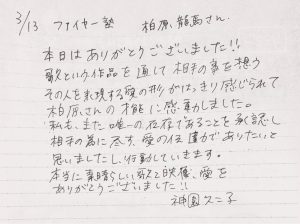 3/13 ファイヤー塾 柏原龍馬さん.
本日はありがとうございました!!
歌という作品を通して相手の事を想う
その人を表現する愛の形がはっきり感じられて
柏原さんの才能に感動しました。
私も、また唯一の存在であることを承認し
相手の為に尽す、愛の伝達でありたいと
思いましたし、行動していきます。
本当に素晴らしい歌と映像、愛を
ありがとうございました!!
神園久二子